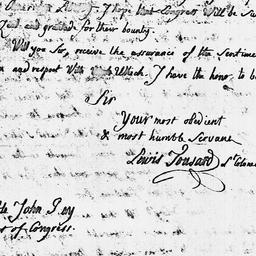 I hope that Congress Will be
and grateful for their bounty.
Will you Sir, receive the assurance of the Sentime
and respect With Which. I have the honor to b
Sir
Your most obedient
& most humble Servane
Lewis Tousard Lt Colonel
John Jay
of Congress.